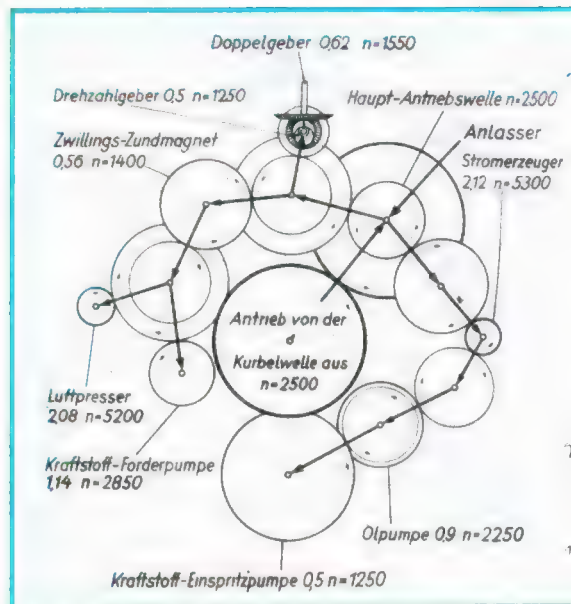 Doppelgeber 0,62 n=1550
Drehzahlgeber 0,5 n=1250
Haupt-Antriebswelle n=2500
Zwillings-Zundmagnet
0,56 n=1400
Anlasser
Stromerzeuger
2,12 n=5300
Antrieb von der
d
Kurbelwelle aus
n=2500
Luftpresser
2,08 n=5200
Kraftstoff-Forderpumpe
1,14 n=2850
Olpumpe 0,9 n=2250
Kraftstoff-Einspritzpumpe 0,5 n=1250